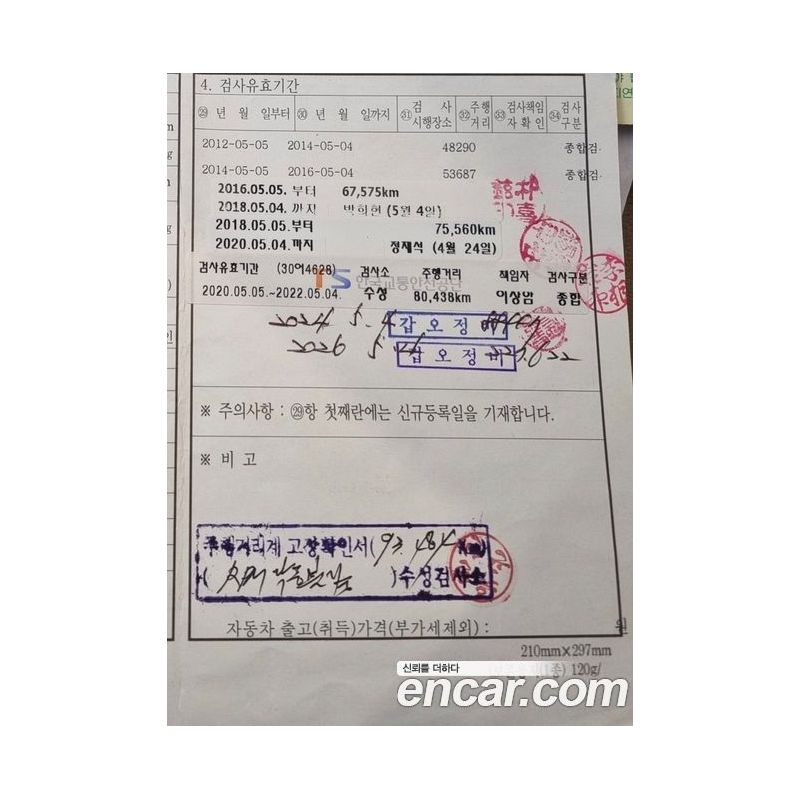 4. 검사유효기간
㉙ 년 월 일부터 ㉚ 년 월 일까지 ㉛ 검 사 시행장소 ㉜ 주행 거리 ㉝ 검사책임 자확인 ㉞ 검사 구분
2012-05-05 2014-05-04 48290 종합검.
2014-05-05 2016-05-04 53687 종합검.
2016.05.05. 부터 67,575km
2018.05.04. 까지 박희현 (5월 4일)
2018.05.05.부터 75,560km
2020.05.04.까지 정재석 (4월 24일)
검사유효기간 (30어4628) 검사소 주행거리 책임자 검사구분
TS 한국교통안전공단
2020.05.05.~2022.05.04. 수성 80,438km 이상암 종합
2024 5. 4 갑오정
2026 5 갑오정비
※ 주의사항 : ㉙항 첫째란에는 신규등록일을 기재합니다.
※ 비 고
주행거리계 고장확인서(93,484 Km)
( )수성검사소
자동차 출고(취득)가격(부가세제외) : 원
210mm×297mm
120g/
신뢰를 더하다
encar.com